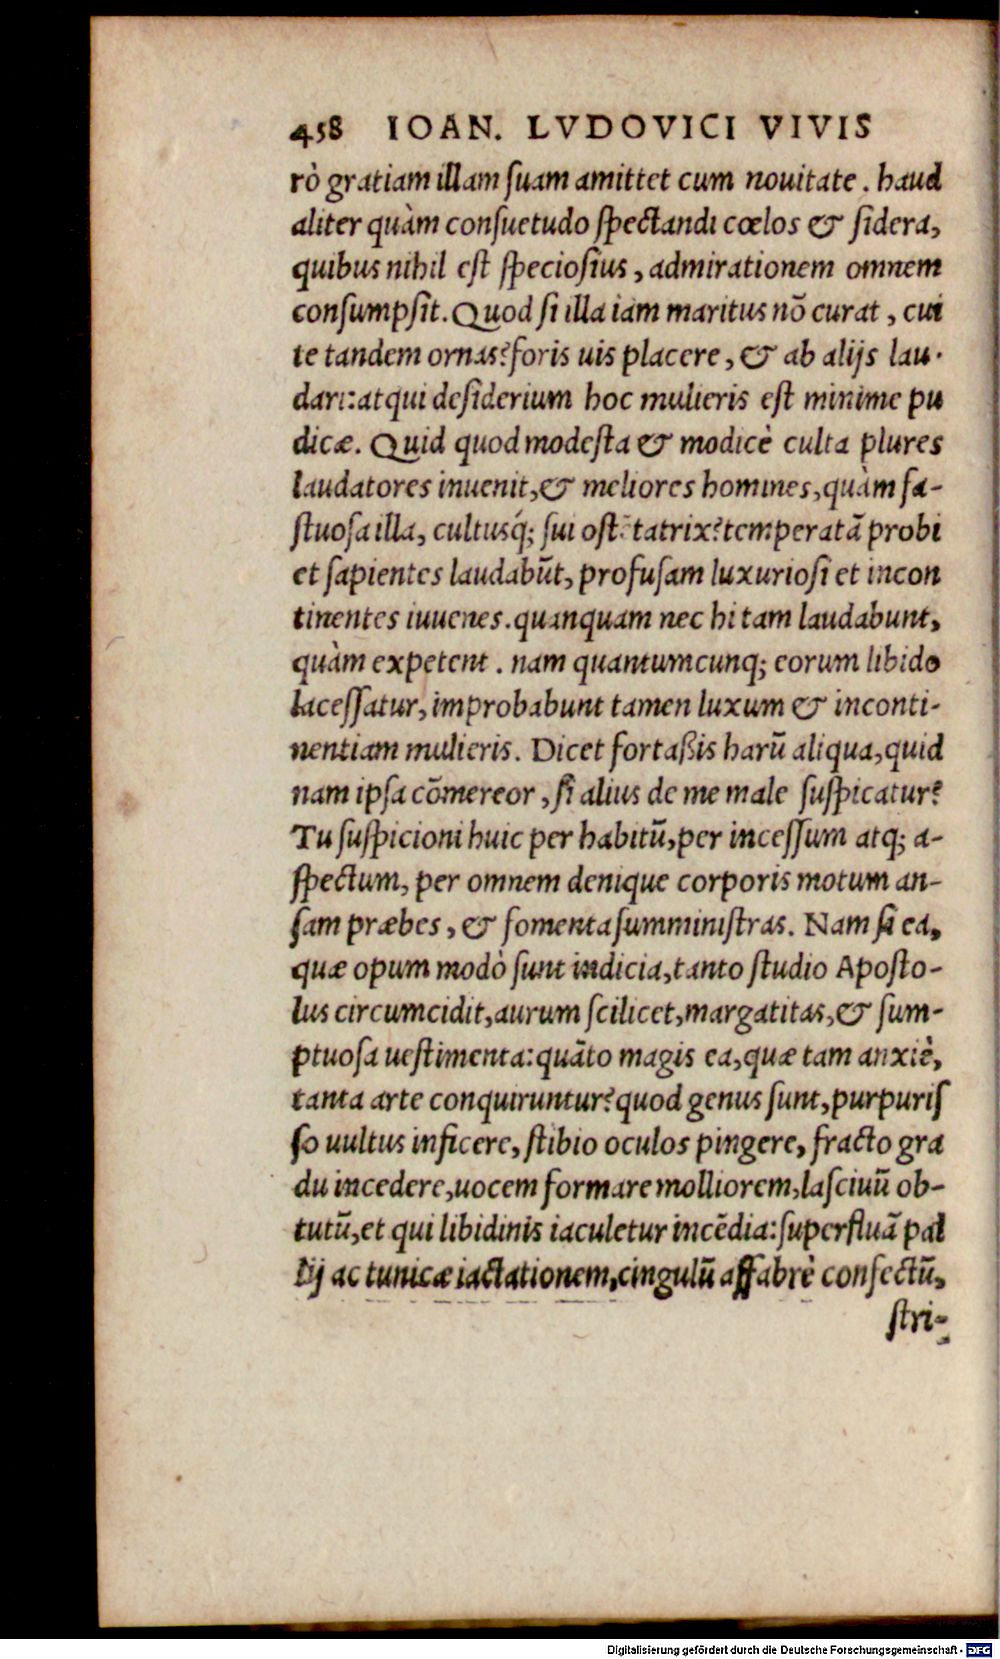 458 IOAN. LVDOVICI VIVIS
rò gratiam illam ſuam amittet cum nouitate. haud
aliter quàm conſuetudo ſpectandi cœlos & ſidera,
quibus nihil eſt ſpecioſius, admirationem omnem
conſumpſit. Quod ſi illa iam maritus nō curat, cui
te tandem ornas? foris uis placere, & ab alijs lau-
dari: atqui deſiderium hoc mulieris eſt minime pu
dicæ. Quid quod modeſta & modicè culta plures
laudatores inuenit, & meliores homines, quàm fa-
ſtuoſa illa, cultusq́; ſui oſtētatrix? temperatā probi
et ſapientes laudabūt, profuſam luxurioſi et incon
tinentes iuuenes. quanquam nec hi tam laudabunt,
quàm expetent. nam quantumcunq; eorum libido
laceſſatur, improbabunt tamen luxum & inconti-
nentiam mulieris. Dicet fortaßis harū aliqua, quid
nam ipſa cōmereor, ſi alius de me male ſuſpicatur?
Tu ſuſpicioni huic per habitū, per inceſſum atq; a-
ſpectum, per omnem denique corporis motum an-
ſam præbes, & fomenta ſumminiſtras. Nam ſi ea,
quæ opum modò ſunt indicia, tanto ſtudio Apoſto-
lus circumcidit, aurum ſcilicet, margatitas, & ſum-
ptuoſa ueſtimenta: quāto magis ea, quæ tam anxiè,
tanta arte conquiruntur? quod genus ſunt, purpuriſ
ſo uultus inficere, ſtibio oculos pingere, fracto gra
du incedere, uocem formare molliorem, laſciuū ob-
tutū, et qui libidinis iaculetur incēdia: ſuperfluā pal
lij ac tunicæ iactationem, cingulū affabrè confectū,
ſtri-
Digitalisierung gefördert durch die Deutsche Forschungsgemeinschaft - DFG